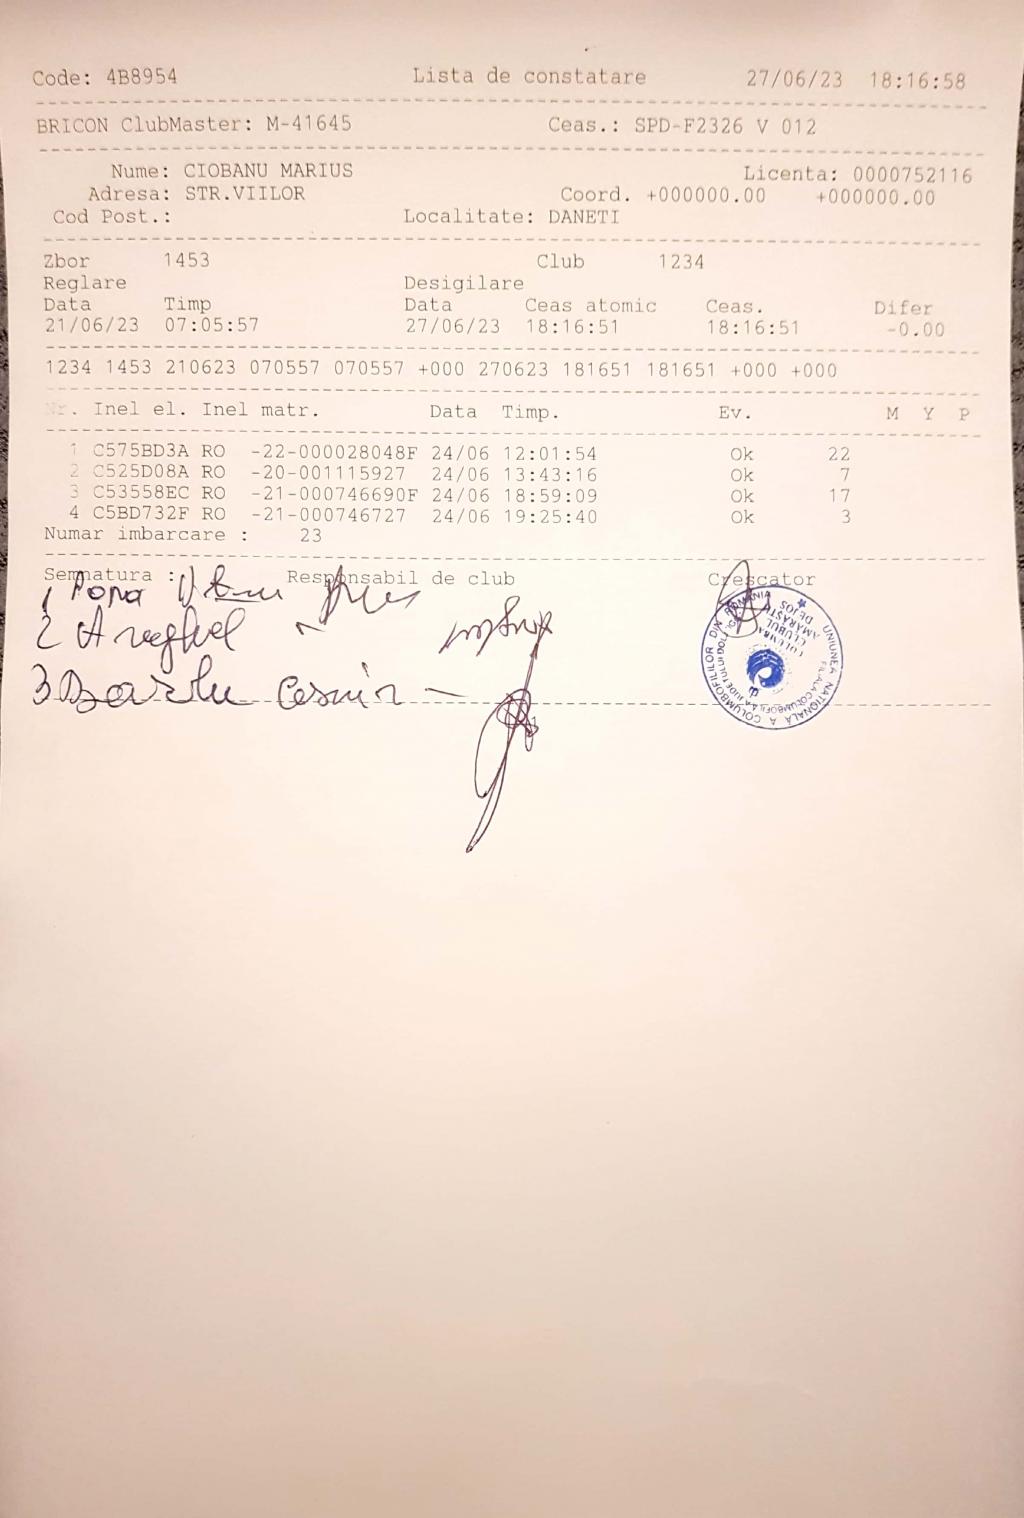 Code: 4B8954 Lista de constatare 27/06/23 18:16:58
BRICON ClubMaster: M-41645 Ceas.: SPD-F2326 V 012
Nume: CIOBANU MARIUS Licenta: 0000752116
Adresa: STR.VIILOR Coord. +000000.00 +000000.00
Cod Post.: Localitate: DANETI
Zbor 1453 Club 1234
Reglare Desigilare
Data Timp Data Ceas atomic Ceas. Difer
21/06/23 07:05:57 27/06/23 18:16:51 18:16:51 -0.00
1234 1453 210623 070557 070557 +000 270623 181651 181651 +000 +000
Nr. Inel el. Inel matr. Data Timp. Ev. M Y P
1 C575BD3A RO -22-000028048F 24/06 12:01:54 Ok 22
2 C525D08A RO -20-001115927 24/06 13:43:16 Ok 7
3 C53558EC RO -21-000746690F 24/06 18:59:09 Ok 17
4 C5BD732F RO -21-000746727 24/06 19:25:40 Ok 3
Numar imbarcare : 23
Semnatura : Responsabil de club Crescator
1 Popa
2
3 Cosmin
UNIUNEA NATIONALA A COLUMBOFILILOR DIN ROMANIA
FILIALA COLUMBOFILA A JUDETULUI DOLJ
CLUBUL
COLUMBA
AMARASTII
DE JOS